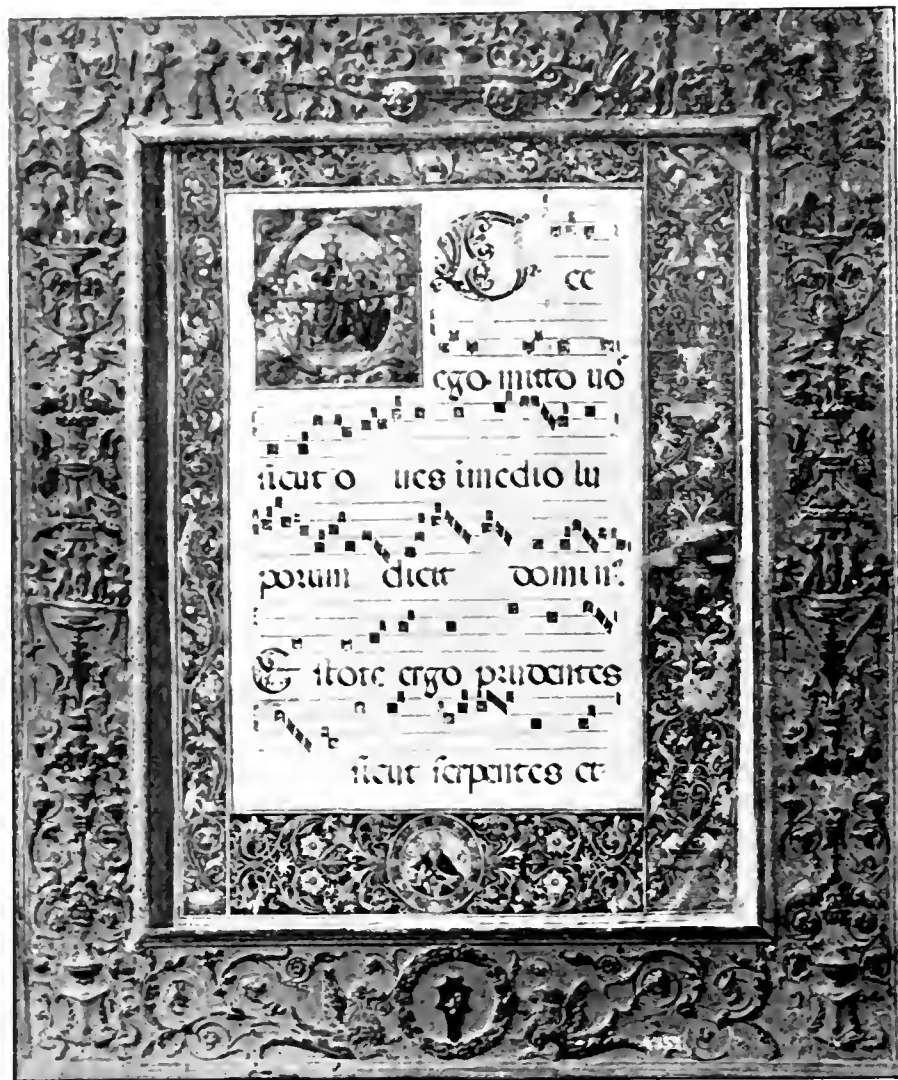 E cc
ego mitto uo
sicut o ues i medio lu
porum dicit domin
Estote ergo prudentes
sicut serpentes et
4353